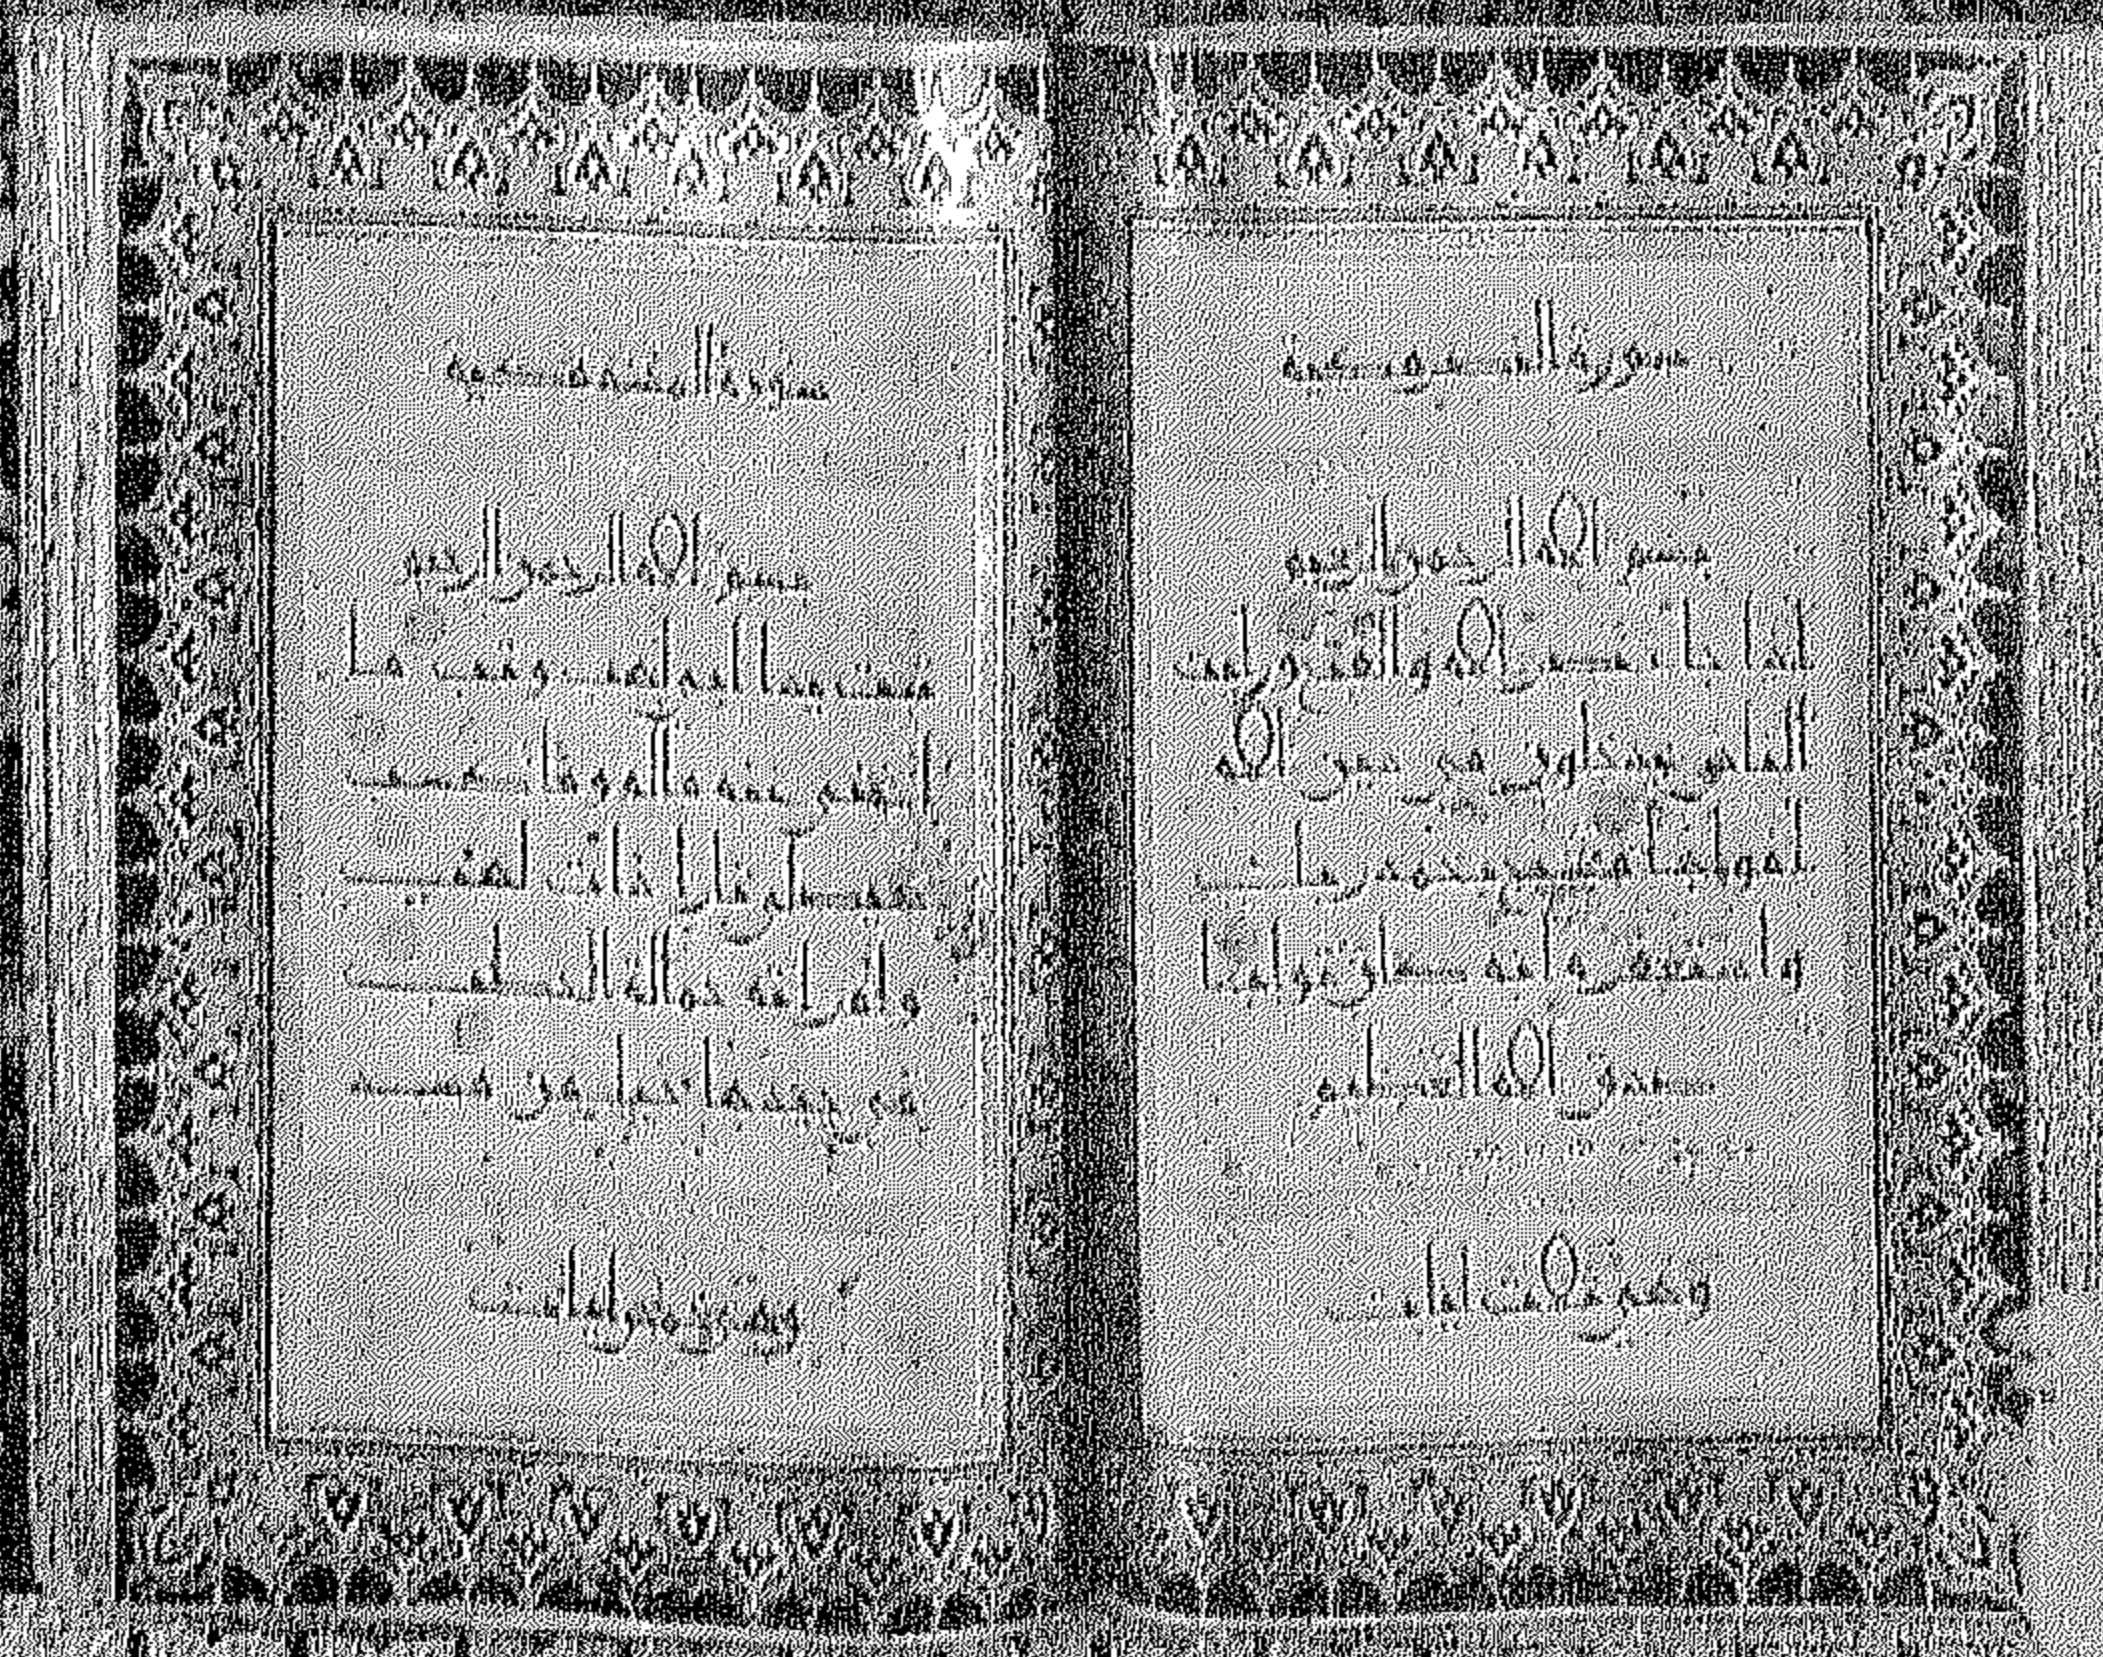 سورة النصر مدنية
بسم الله الرحمن الرحيم
اذا جاء نصر الله والفتح ورايت
الناس يدخلون في دين الله
افواجا فسبح بحمد ربك
واستغفره انه كان توابا
صدق الله العظيم
وهي ثلاث ايات
سورة المسد مكية
بسم الله الرحمن الرحيم
تبت يدا ابي لهب وتب ما
اغنى عنه ماله وما كسب
سيصلى نارا ذات لهب
وامراته حمالة الحطب
في جيدها حبل من مسد